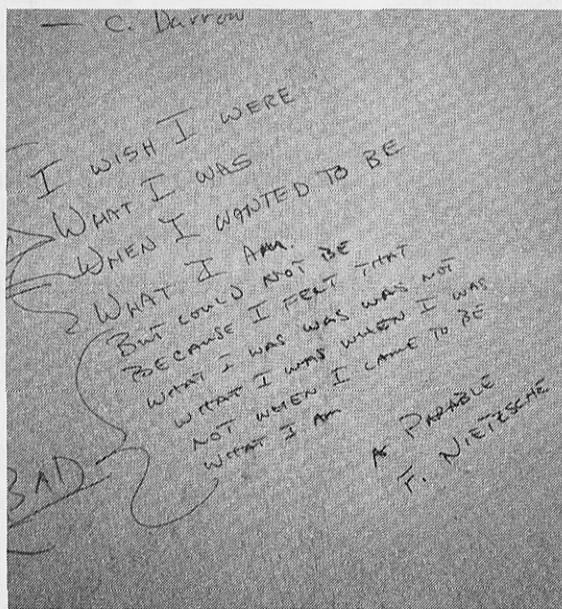 — C. Darrow
I WISH I WERE
WHAT I WAS
WHEN I WANTED TO BE
WHAT I AM.
BUT COULD NOT BE
BECAUSE I FELT THAT
WHAT I WAS WAS WAS NOT
WHAT I WAS WHEN I WAS
NOT WHEN I CAME TO BE
WHAT I AM
A PARABLE
F. NIETZSCHE
BAD